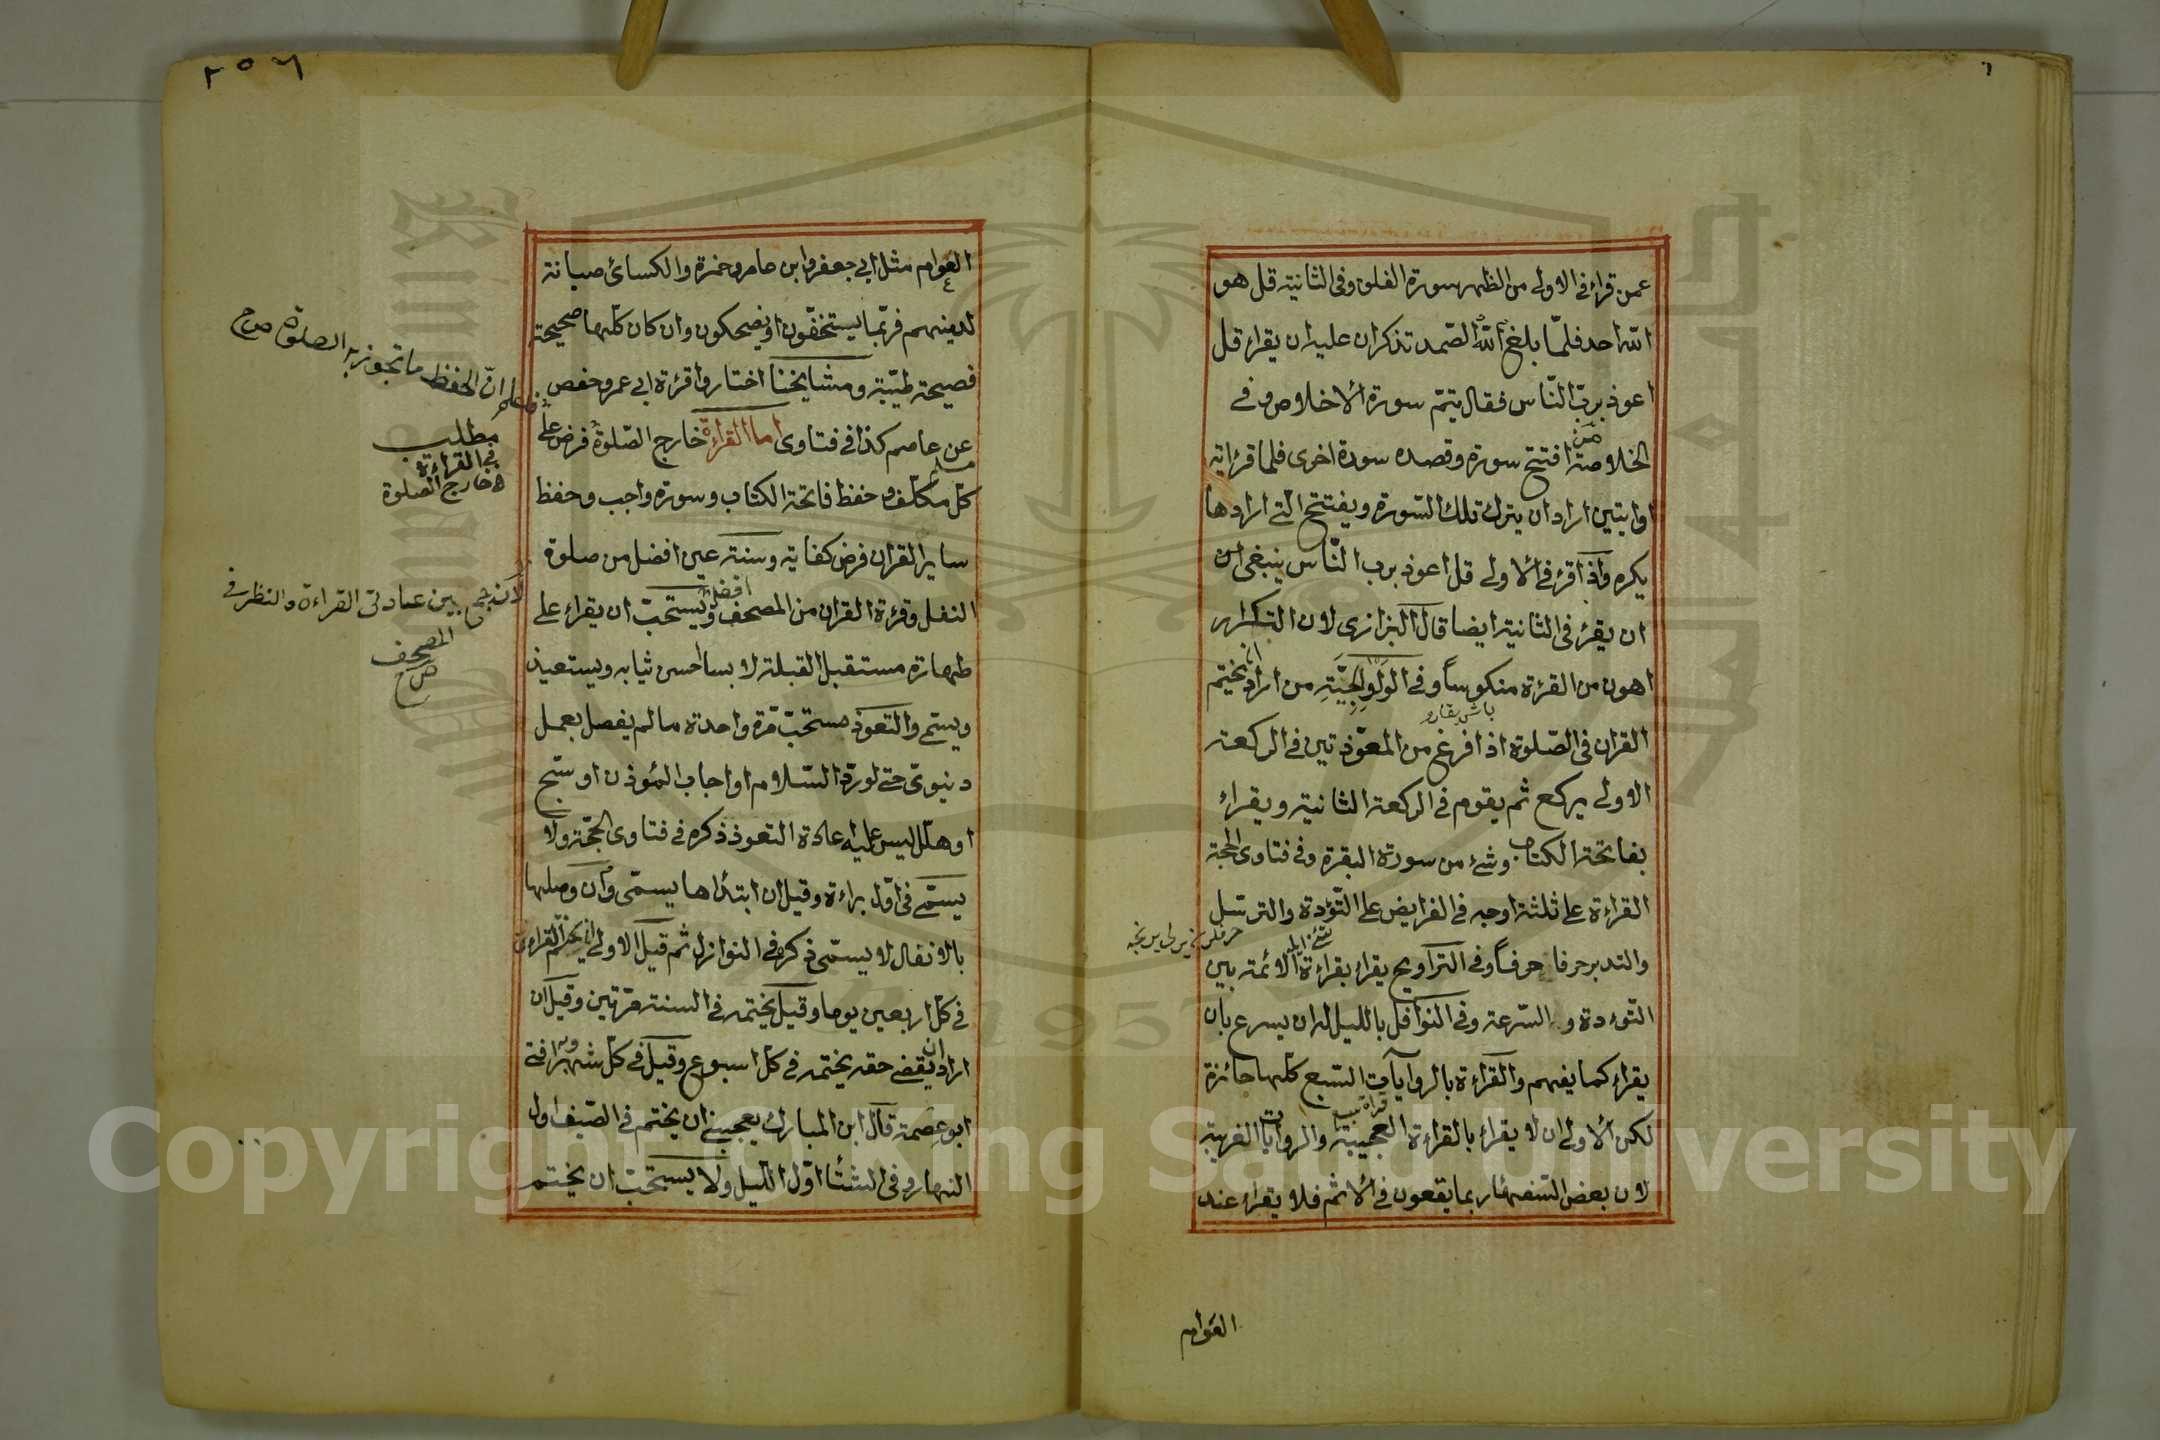 ٦
عمن قراء في الاولى من الظهر سورة الفلق وفي الثانية قل هو
الله احد فلمّا بلغ الله الصّمد تذكر ان عليه ان يقراء قل
اعوذ بربّ النّاس فقال يتمّ سورة الاخلاص وفي
الخلاصة من افتتح سورة وقصده سورة اخرى فلما قرء اية
او ايتين اراد ان يترك تلك السّورة ويفتتح التي ارادها
يكره واذا قرء في الاولى قل اعوذ برب النّاس ينبغي ان
ان يقرء في الثانية ايضا قال البزازى لان التكرار
اهون من القرءة منكوساً وفي الولوالجيّة من اراد ان يختم
القران في الصّلوة اذا فرغ من المعوّذتين في الركعة
الاولى يركع ثم يقوم في الركعة الثانية ويقراء
بفاتحة الكتاب وشئ من سورة البقرة وفي فتاوى الحجة
القراءة على ثلثة اوجه في الفرايض على التّؤدة والترسّل
والتدبر حرفا حرفاً وفي التراويح يقراء بقراءة الائمة بين
التّوءدة والسّرعة وفي النوافل بالليل له ان يسرع بان
يقراء كما يفهم والقراءة بالروايات السّبع كلها جائزة
لكن الاولى ان لا يقراء بالقراءة العجيبة والروايات الغريبة
لان بعض السّفهاء ربما يقعون في الاثم فلا يقراء عند
العوام
٢٥٦
العوام مثل ابي جعفر وابن عامر وحمزة والكسائ صيانة
لدينهم فربّما يستخفّون او يضحكون وان كان كلّها صحيحة
فصيحة طيّبة ومشايخنا اختاروا قرءة ابي عمرو حفص
عن عاصم كذا في فتاوى اما القراءة خارج الصّلوة فرض على
كلّ مسلم مكلّف وحفظ فاتحة الكتاب وسورة واجب وحفظ
ساير القران فرض كفاية وسنة عين افضل من صلوة
النفل وقرءة القران من المصحف افضل ويستحبّ ان يقراء على
طهارة مستقبل القبلة لابسا احسن ثيابه ويستعيذ
ويسمّي والتعوّذ مستحبّ مرّة واحدة ما لم يفصل بعمل
دنيوىّ حتى لو ردّ السّلام او اجاب المؤذن او سبّح
او هلّل ليس عليه اعادة التعوذ ذكره في فتاوى الحجّة ولا
يسمّي في اوّل براءة وقيل ان ابتداها يسمّى وان وصلها
بالانفال لا يسمّى ذكره في النوازل ثم قيل الاولى ان يختم القراءن
في كلّ اربعين يوما وقيل يختمه في السنة مرّتين وقيل ان
اراد ان يقضي حقه يختمه في كلّ اسبوع وقيل في كلّ شهر وبه افتى
ابو عصمة قال ابن المبارك يعجبني ان يختم في الصّيف اول
النهار وفي الشتاء اوّل اللّيل ولا يستحبّ ان يختم
فاعلم انّ الحفظ ما تجوز به الصلوة
مطلب
في القراءة
خارج الصلوة
لانه جمع بين عبادتي القراءة والنظر في
المصحف
Copyright © King Saud University
1957